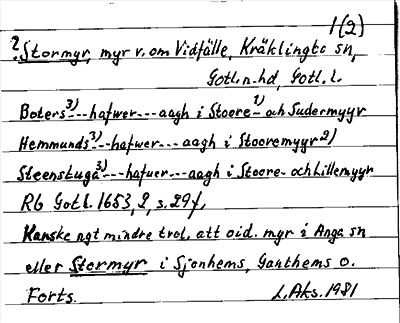 1(2)
?Stormyr, myr v. om Vidfälle, Kräklingbo sn,
Gotl. n. hd, Gotl. l.
Boters3)---hafwer---aagh i Stoore-1) och Sudermyyr
Hemmunds3)---hafwer---aagh i Stooremyyr2)
Steenstuga3)---hafuer---aagh i Stoore- och Lillemyyr
Rb Gotl. 1653, 2, s. 29f,
Kanske ngt mindre trol. att oid. myr i Anga sn
eller Stormyr i Sjonhems, Ganthems o.
Forts. L. Aks. 1981